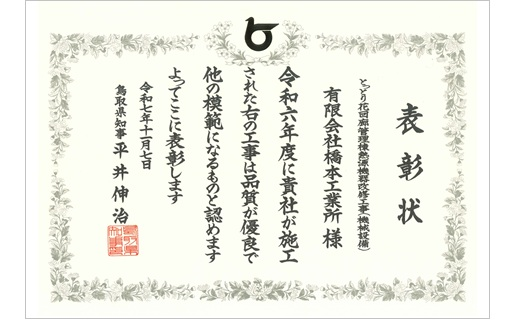 表彰状
とっとり花回廊管理棟熱源機器改修工事(機械設備)
有限会社橋本工業所 様
令和六年度に貴社が施工
された右の工事は品質が優良で
他の模範になるものと認めます
よってここに表彰します
令和七年十一月七日
鳥取県知事 平井伸治